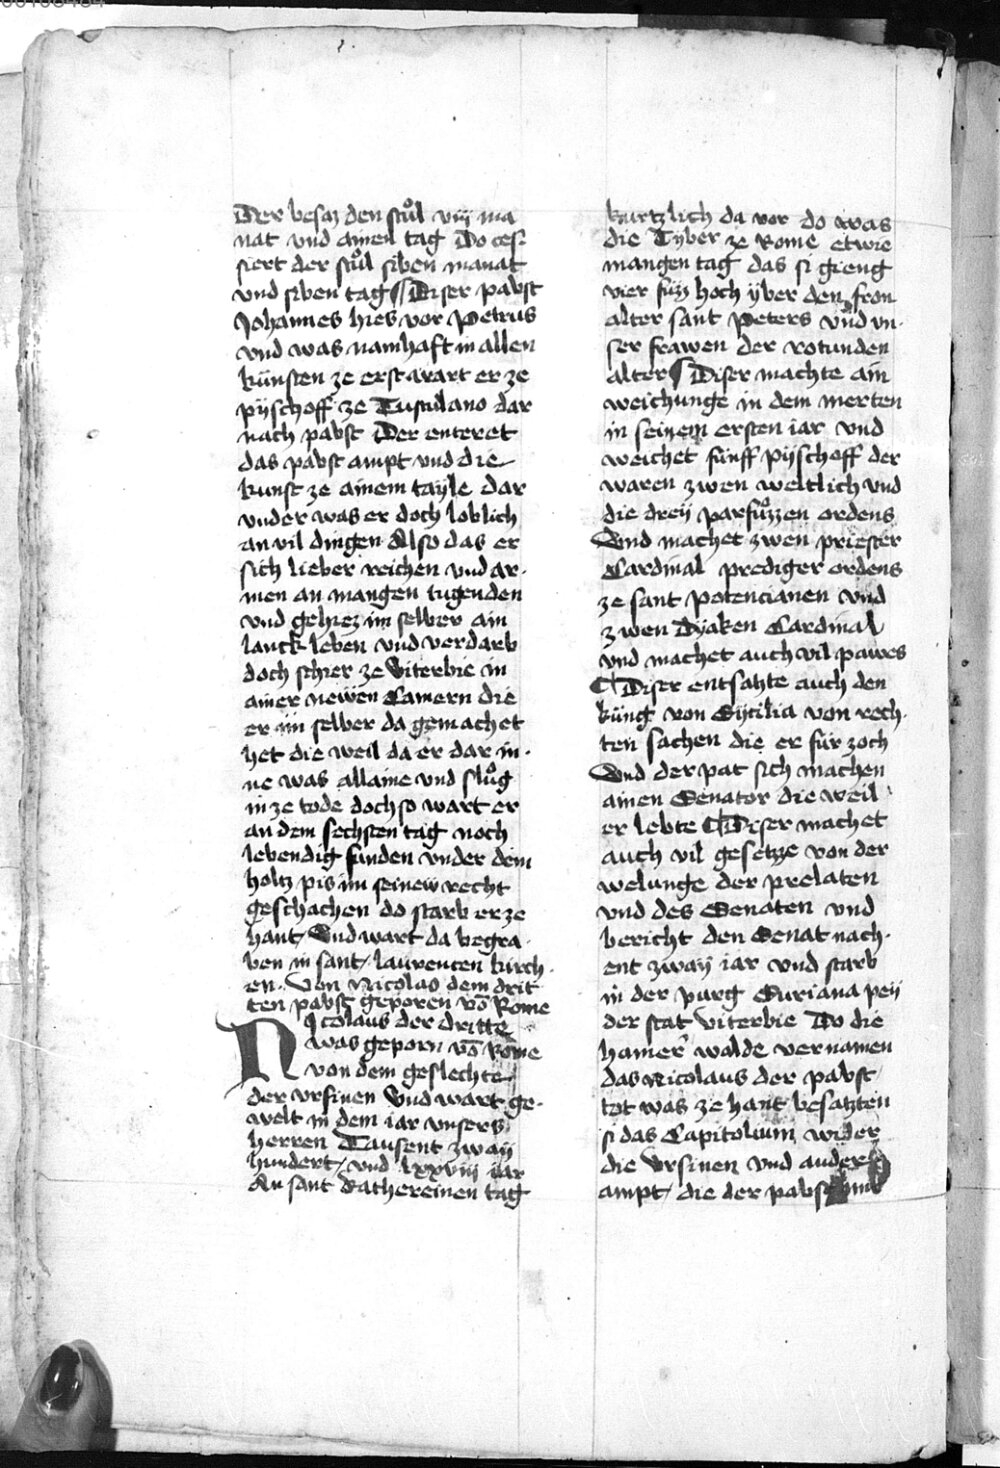 Der besaz den stůl viij ma
nat vnd ainen tag Do ces-
siert der stůl siben manat
vnd siben tag Diser pabst
Johannes hies vor Petrus
vnd was namhaft in allen
künsten ze erst wart er ze
pyschoff ze Tusculano dar
nach pabst Der enteret
das pabst ampt vnd die
kunst ze ainem tayle dar
vnder was er doch loblich
an vil dingen Also das er
sich lieber reichen vnd ar-
men an mangen tugenden
vnd gehiez im selber ain
lanck leben vnd verdarb
doch schier ze Viterbie in
ainer newen Camern die
er im selber da gemachet
het die weil da er dar in-
ne was allaine vnd slůg
in ze tode doch so wart er
an dem sechsten tag noch
lebendig funden vnder dem
holtz pis im seinew recht
geschachen do starb er ze
hant Vnd wart da begra-
ben in sant laurencen kirch-
en. Von Nicolao dem drit
ten pabst geporen vō Rome
Nicolaus der dritte
was geporn vō Rome
von dem geslechte
der vrsinen Vnd wart ge-
welt in dem iar vnsers
herren Tausent zway
hundert vnd lxxviij iar
An sant Kathereinen tag
kurtzlich da vor do was
die Tyber ze Rome etwie
mangen tag das si gieng
vier fuz hoch yber den fron
alter sant Peters vnd vn-
ser frawen der rotunden
alter Diser machte ain
weichunge in dem merten
in seinem ersten iar vnd
weichet fünff pyschoff der
waren zwen weltlich vnd
die drey parfůzzen ordens
Vnd machet zwen priester
Cardinal prediger ordens
ze sant potencianen vnd
zwen Dyaken Cardinal
vnd machet auch vil pawes
Diser entsatzte auch den
küng von Cycilia von rech-
ten sachen die er für zoch
Vnd der pat sich machen
ainen Senator die weil
er lebte Diser machet
auch vil gesetze von der
welunge der prelaten
vnd des Senaten vnd
bericht den Senat nach-
ent zway iar vnd starb
in der purg Suriana pey
der stat viterbie Do die
hamer walde vernamen
das Nicolaus der pabst
tot was ze hant besatzten
si das Capitolium wider
die Vrsinen vnd ander
ampt die der pabst